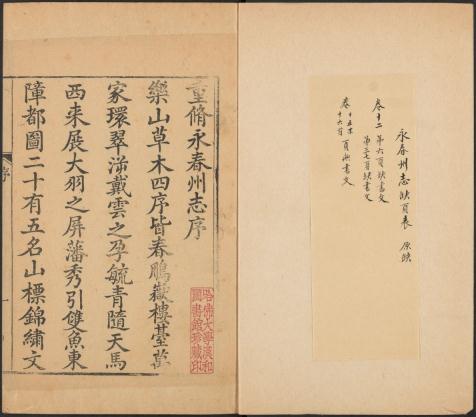 永春州志缺頁表 原缺
卷十二 第六頁缺書文
第三七頁缺書文
卷十五末
十六首 頁無書文
重脩永春州志序
樂山草木四序皆春鵬嶽樓臺萬
家環翠滋戴雲之孕毓青隨天馬
西来展大羽之屏藩秀引雙魚東
障都圖二十有五名山標錦繡文
哈佛大學漢和
圖書館珍藏印
序
一